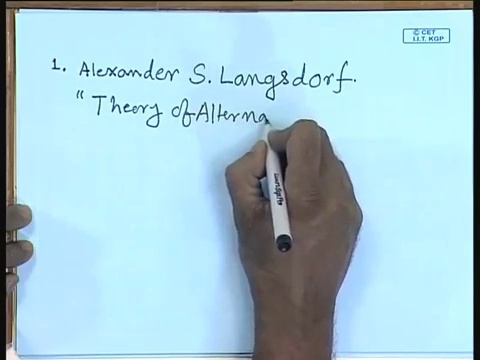 © CET
I.I.T. KGP
1. Alexander S. Langsdorf.
"Theory of Alterna